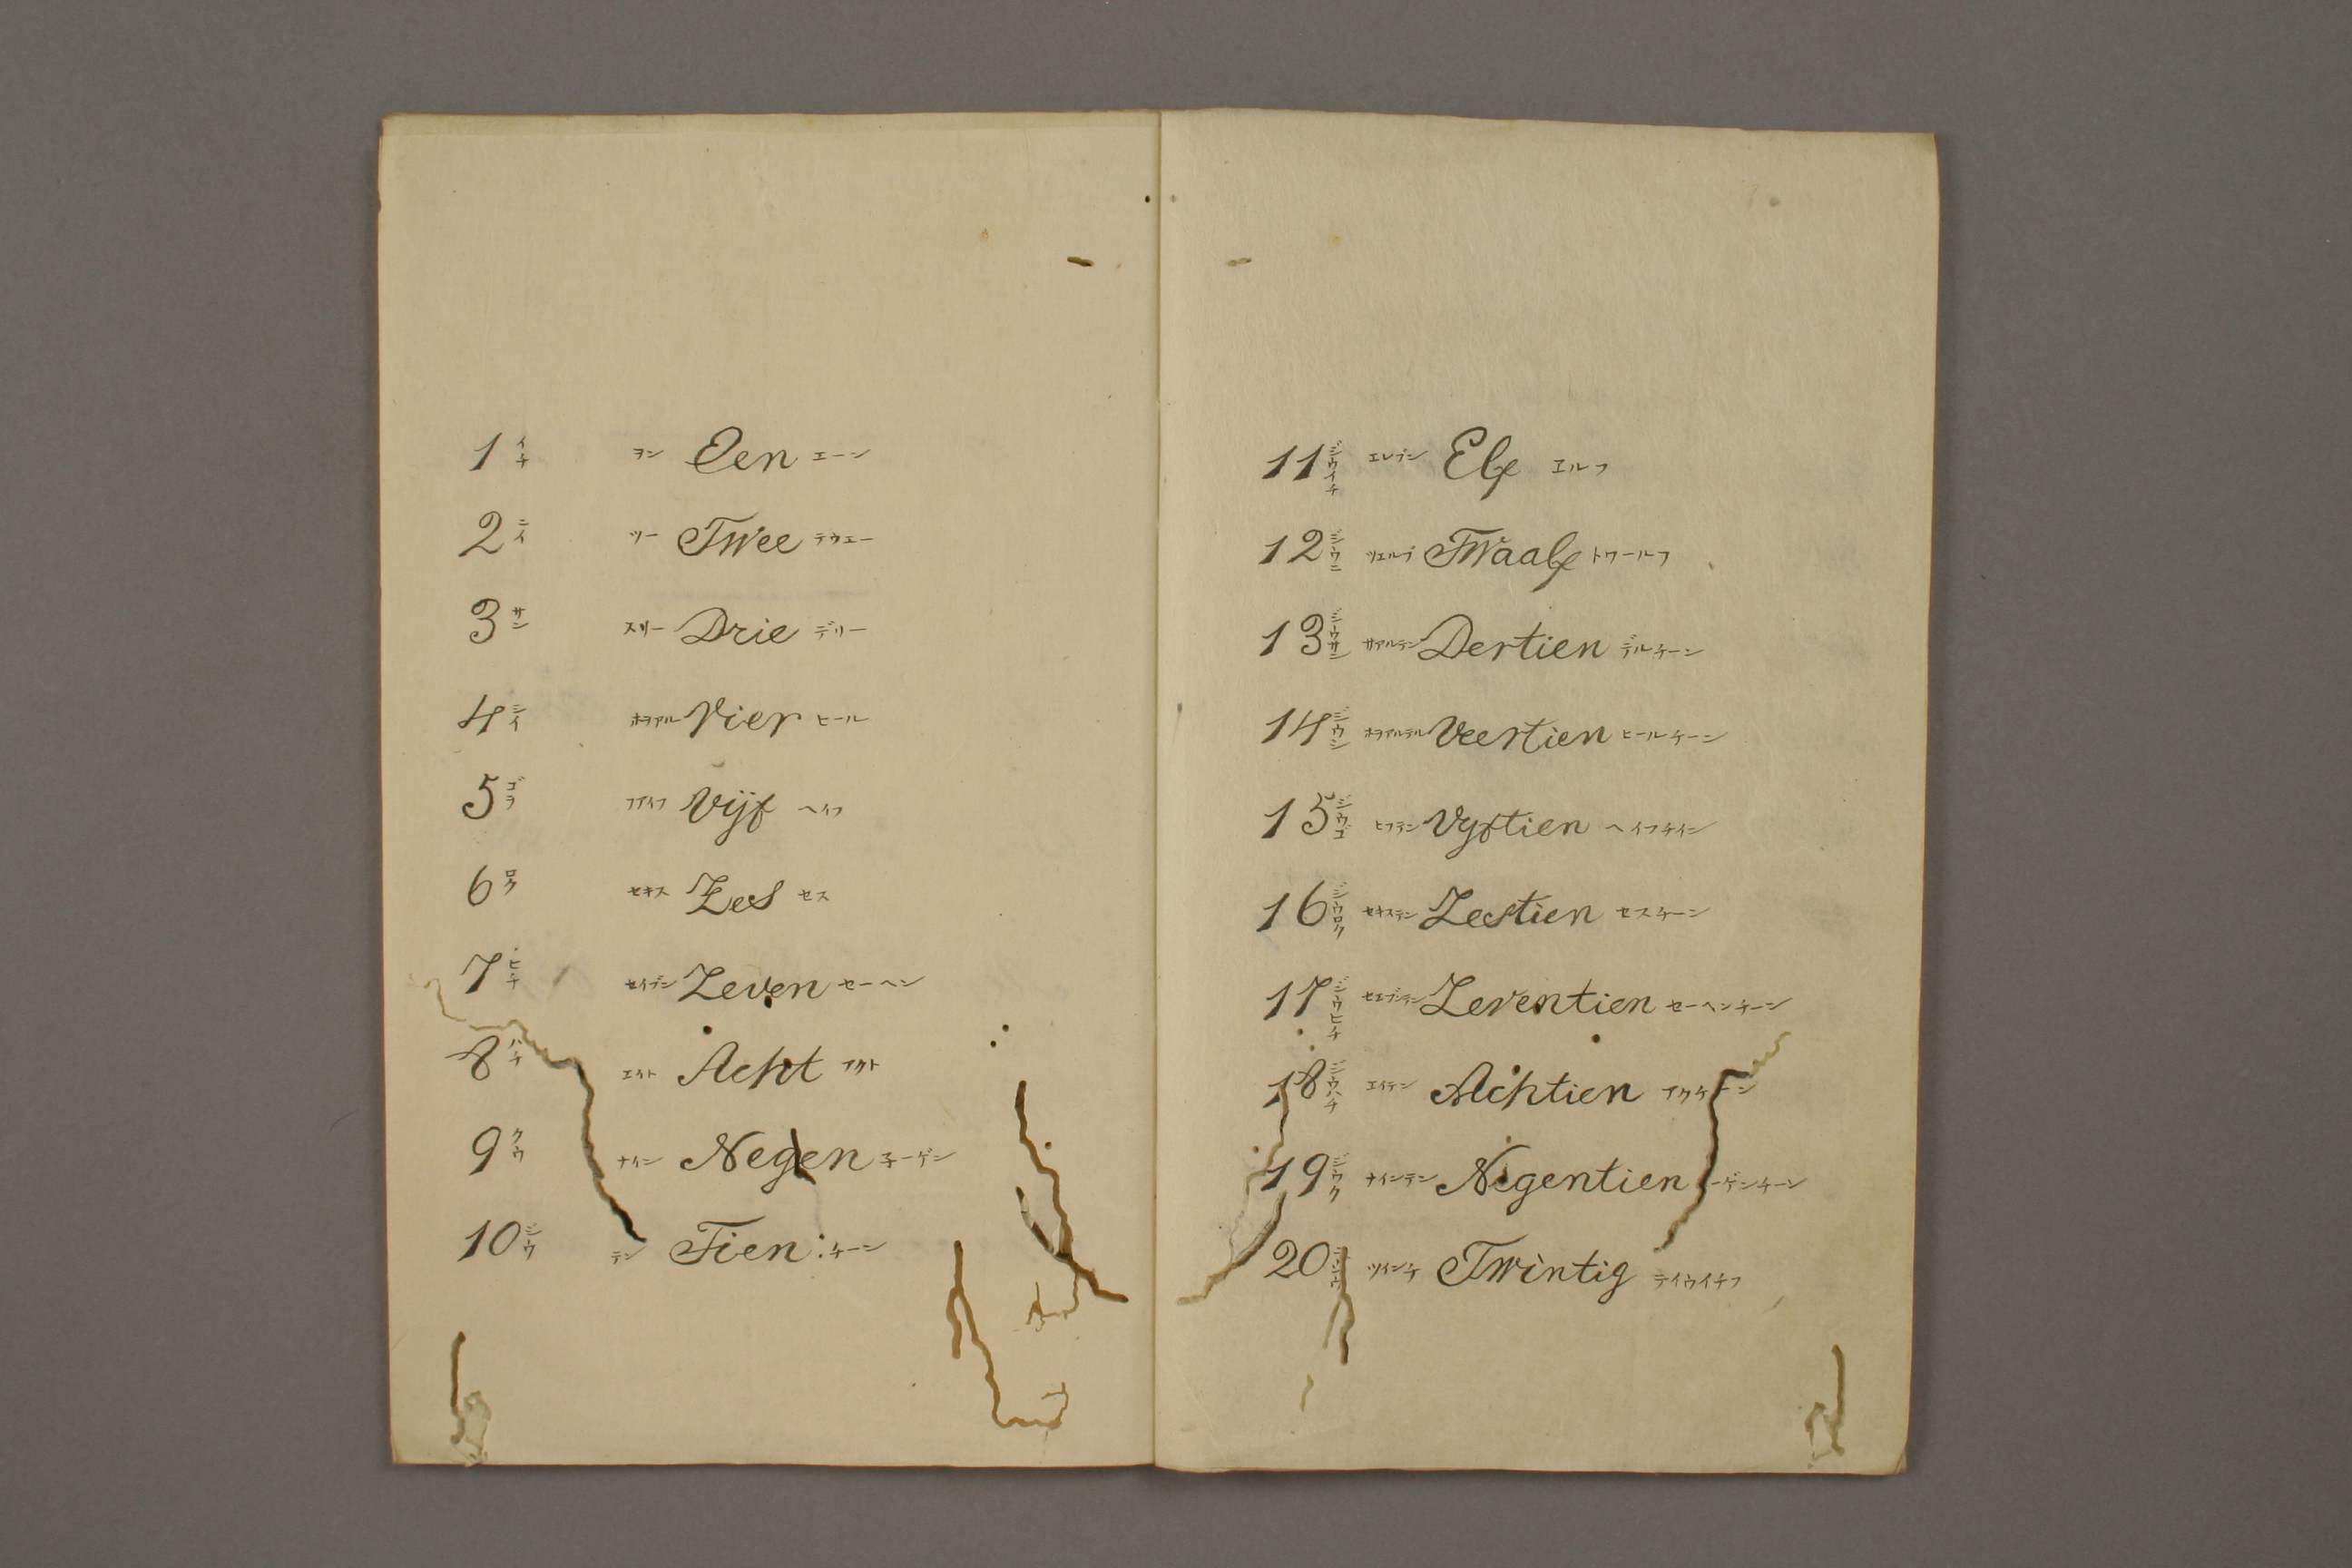 1 イチ ヲン Een エーン
2 ニイ ツー Twee テウエー
3 サン スリー Drie デリー
4 シイ ホヲアル Vier ヒール
5 ゴヲ フアイフ Vijf ヘイフ
6 ロク セキス Zes セス
7 ヒチ セイブン Zeven セーヘン
8 ハチ エイト Acht アクト
9 クウ ナイン Negen 子ーゲン
10 ジウ テン Tien: チーン
11 ジウイチ エレブン Elf エルフ
12 ジウニ ツエルブ Twaalf トワールフ
13 ジウサン サアルテン Dertien デルチーン
14 ジウシ ホヲアルテル Veertien ヒールチーン
15 ジウゴ ヒフテン Vyftien ヘイフチイン
16 ジウロク セキステン Zestien セスチーン
17 ジウヒチ セエブンテン Zeventien セーヘンチーン
18 ジウハチ エイテン Achtien
19 ジウク ナインテン Negentien ーゲンチーン
20 ツインテ Twintig テイウイチフ